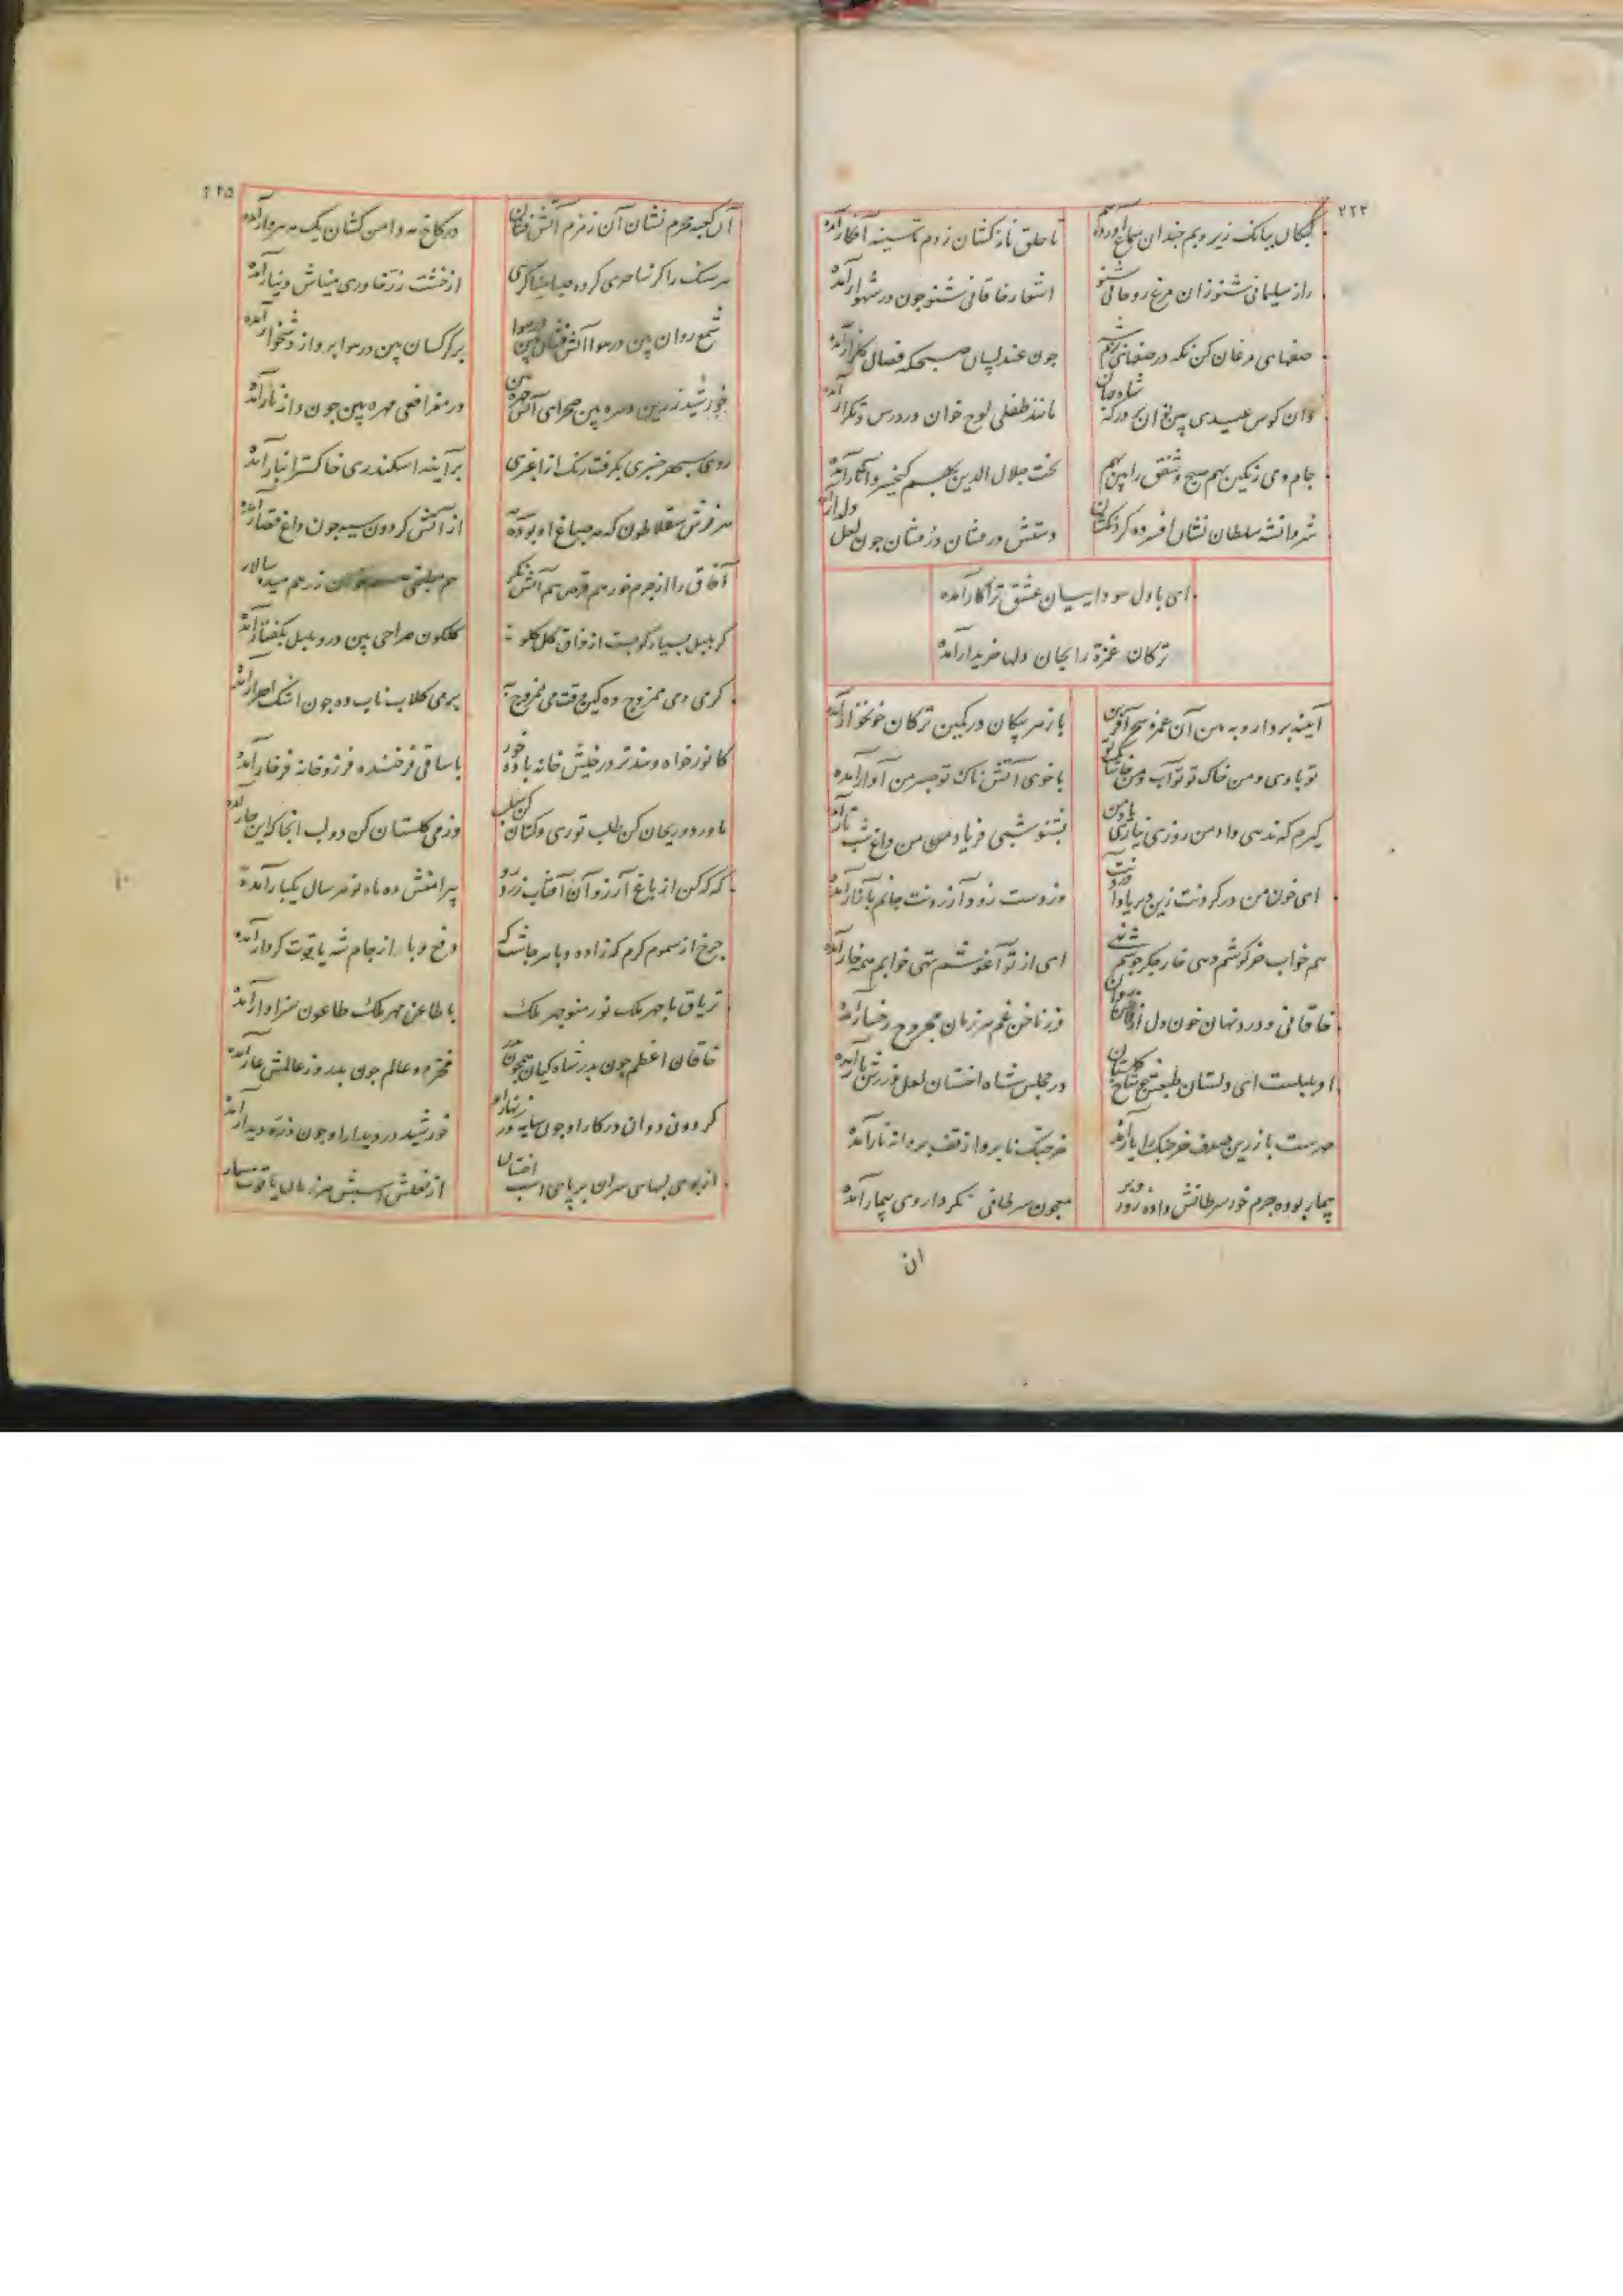 ۲۲۴
کبکان ببانک زیر و بم چندان سماع آورده هم تا حلق ناز کشان زدم تا سینه افکار آمده
راز سلیمانی شنو زان مرغ روحانی شنو اشعار خاقانی شنو چون در شهوار آمده
صفهای مرغان کن نکه در صفهای بزم شه چون عندلیبان صبحکه فصال کلزار آمده
وان کوس عیدی بین نوان بر درکه شاه جهان مانند طفلی لوح خوان در درس و تکرار آمده
جام و می رنکین بهم صبح و شفق را بین بهم تخت جلال الدین بهم کیخسرو آثار آمده
شروانشه سلطان نشان افسر ده کردنکشان دستش در فشان زر فشان چون لعل دلدار آمده
ای با دل سوداییان عشق ترا کار آمده
ترکان غمزه را بجان دلها خریدار آمده
آیینه بردار و ببین آن غمزه سحر آفرین باز مر پیکان در کمین ترکان خونخوار آمده
تو بادی و من خاک تو تو آب و من خاشاک تو با خوی آتش ناک تو صبر من آوار آمده
کیرم که ندهی داد من روزی نیاری یاد من بشنو شبی فریاد من داغ شب تار آمده
ای خون من در کردنت زین دیر یاد آوردنت وز دست زود آزردنت جانم بآزار آمده
هم خواب خرکوشم دهی خار جکر جوشم نهی ای از تو آغوشم تهی خوابم همه خار آمده
خاقانی و درد نهان خون دل از مژکان روان وز ناخن غم هر زمان مجروح رخسار آمده
او بلبلست ای دلستان طبعش چو شاخ کلستان در مجلس شاه اخستان لعل و زرش بار آمده
هست باز زرین صدف خرچنک را یار آمده خرچنک نا پروا ز تف پروانه نار آمده
بیمار بوده جرم خور سرطانش داده زور و بر معجون سرطانی نکر داروی بیمار آمده
ان
۲۲۵
آن کعبه محرم نشان آن زمزم آتش فشان در کاخ مه دامن کشان یک مه بپروار آمده
هر سنک را کر ساحری کرده صبا میناکری از خشت زر خاوری میناش دینار آمده
شمع روان بین در هوا آتش فشان بین در هوا بر کرکسان بین در هوا پرواز دشخوار آمده
خورشید زرین دهره بین صحرای آتش چهره بین در مغز افعی مهره بین چون دانه نار آمده
روی سپهر چنبری بکرفت رنک از اغبری بر آینه اسکندری خاکستر انبار آمده
هر فرش سقلاطون که مه صباغ او بوده از آتش کردون سیه چون داغ قصار آمده
آفاق را از جرم خور هم قرص هم آتش نکر هم مطبخی هم خوان زر هم میده سالار
کر بلبل بسیار کو بست از فراق کل کلو کلکون صراحی بین در او بلبل بکفتار آمده
کر می دهی ممزوج ده کین وقت می ممزوج به بر می کلاب ناب ده چون اشک احرار آمده
کافور خواه و بید تر در خیش خانه باده خور با ساقی فرخنده فر زو خانه فرخار آمده
با ورد و ریحان کن طلب توزی و کتان کن سلب وز می کلستان کن دو لب انجا که این خار آمده
که که کن از باغ آرزو آن آفتاب زرد رو پیرامنش ده ماه نو هر سال یکبار آمده
چرخ از سموم کرم که زاده وبا هر چاشتکه دفع وبا را جام شه یاقوت کردار آمده
تریاق ما چهر ملک نور منوچهر ملک با طاعن مهر ملک طاعون سزاوار آمده
خاقان اعظم چون پدر شاه کیان فخر دو عالم چون پدر وز عالمش عار آمده
کردون دوان در کار او چون سایه در زنهار او خورشید در دیدار او چون ذره دیدار آمده
از بوسهای سران بر پای اسب اخستان از نعلش اسبش هر زمان یاقوت مسمار